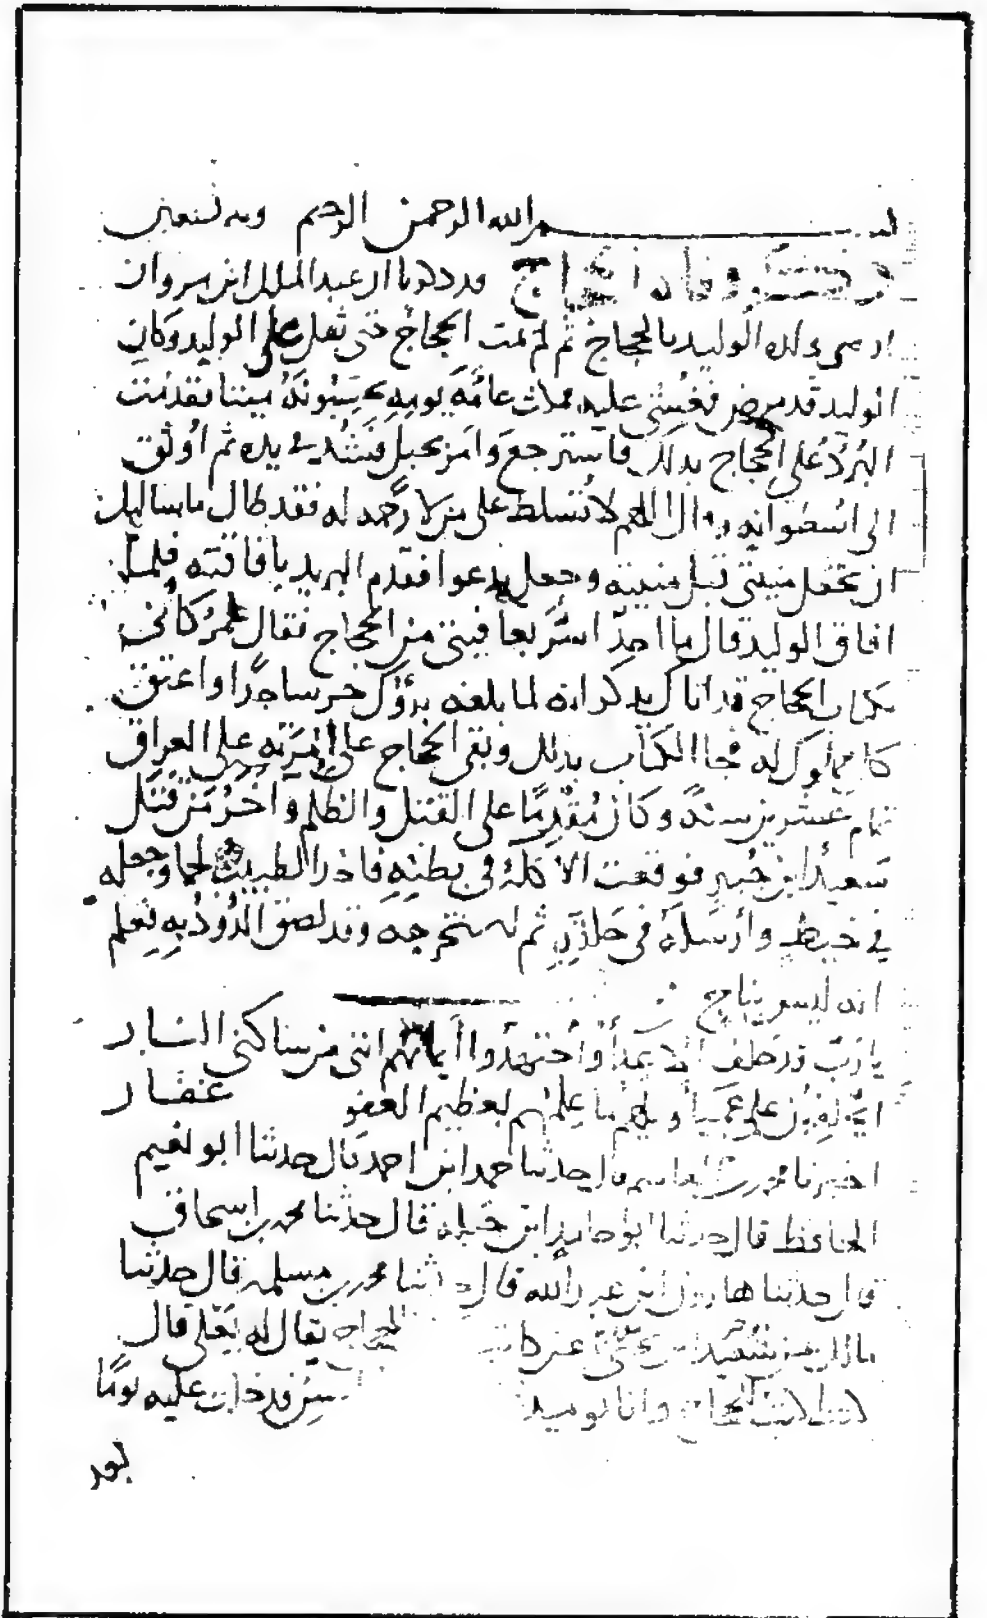 بسم الله الرحمن الرحيم وبه نستعين
وفاة الحجاج قد ذكرنا ان عبد الملك ابن مروان
اوصى ولده الوليد بالحجاج ثم لم يمت الحجاج حتى ثقل على الوليد وكان
الوليد قد مرض فغشي عليه فمكث عامة يومه يحسبونه ميتا فقدمت
البرد على الحجاج بذلك فاسترجع وامر بحبل فشد في يده ثم اوثق
الى اسطوانه وقال اللهم لا تسلط على من لا رحمه له فقد طال ما سالتك
ان تجعل منيتي قبل منيته وجعل يدعوا فقدم البريد بافاقته فلما
افاق الوليد قال ما احد اسر بعافيتي من الحجاج فقال عمر كاني
بكتاب الحجاج قد اتاك يذكر انه لما بلغه برؤك خر ساجدا واعتق
كل مملوك له فجا الكتاب بذلك وبقي الحجاج على امرته على العراق
تمام عشرين سنة وكان مقدما على القتل والظلم واخر من قتل
سعيد ابن جبير فوقعت الاكلة في بطنه فاخذ الطبيب لحما وجعله
في خيط وارسله في حلقه ثم استخرجه وقد لصق الدود به فعلم
انه ليس بناج
يا رب قد حلف الاعداء واجتهدوا ايمانهم انني من ساكني النار
ايحلفون على عمياء ويلهم ما علمهم بعظيم العفو غفار
اخبرنا محمد بن القاسم قال حدثنا حمد ابن احمد قال حدثنا ابو نعيم
الحافظ قال حدثنا ابو حامد ابن جبلة قال حدثنا محمد بن اسحاق
قال حدثنا هارون ابن عبد الله قال حدثنا محمد بن مسلمة قال حدثنا
مالك بن سعيد عن الحجاج يقال له يعلى قال
كنت لكاتب الحجاج وانا يوميذ فدخلت عليه يوما
بعد